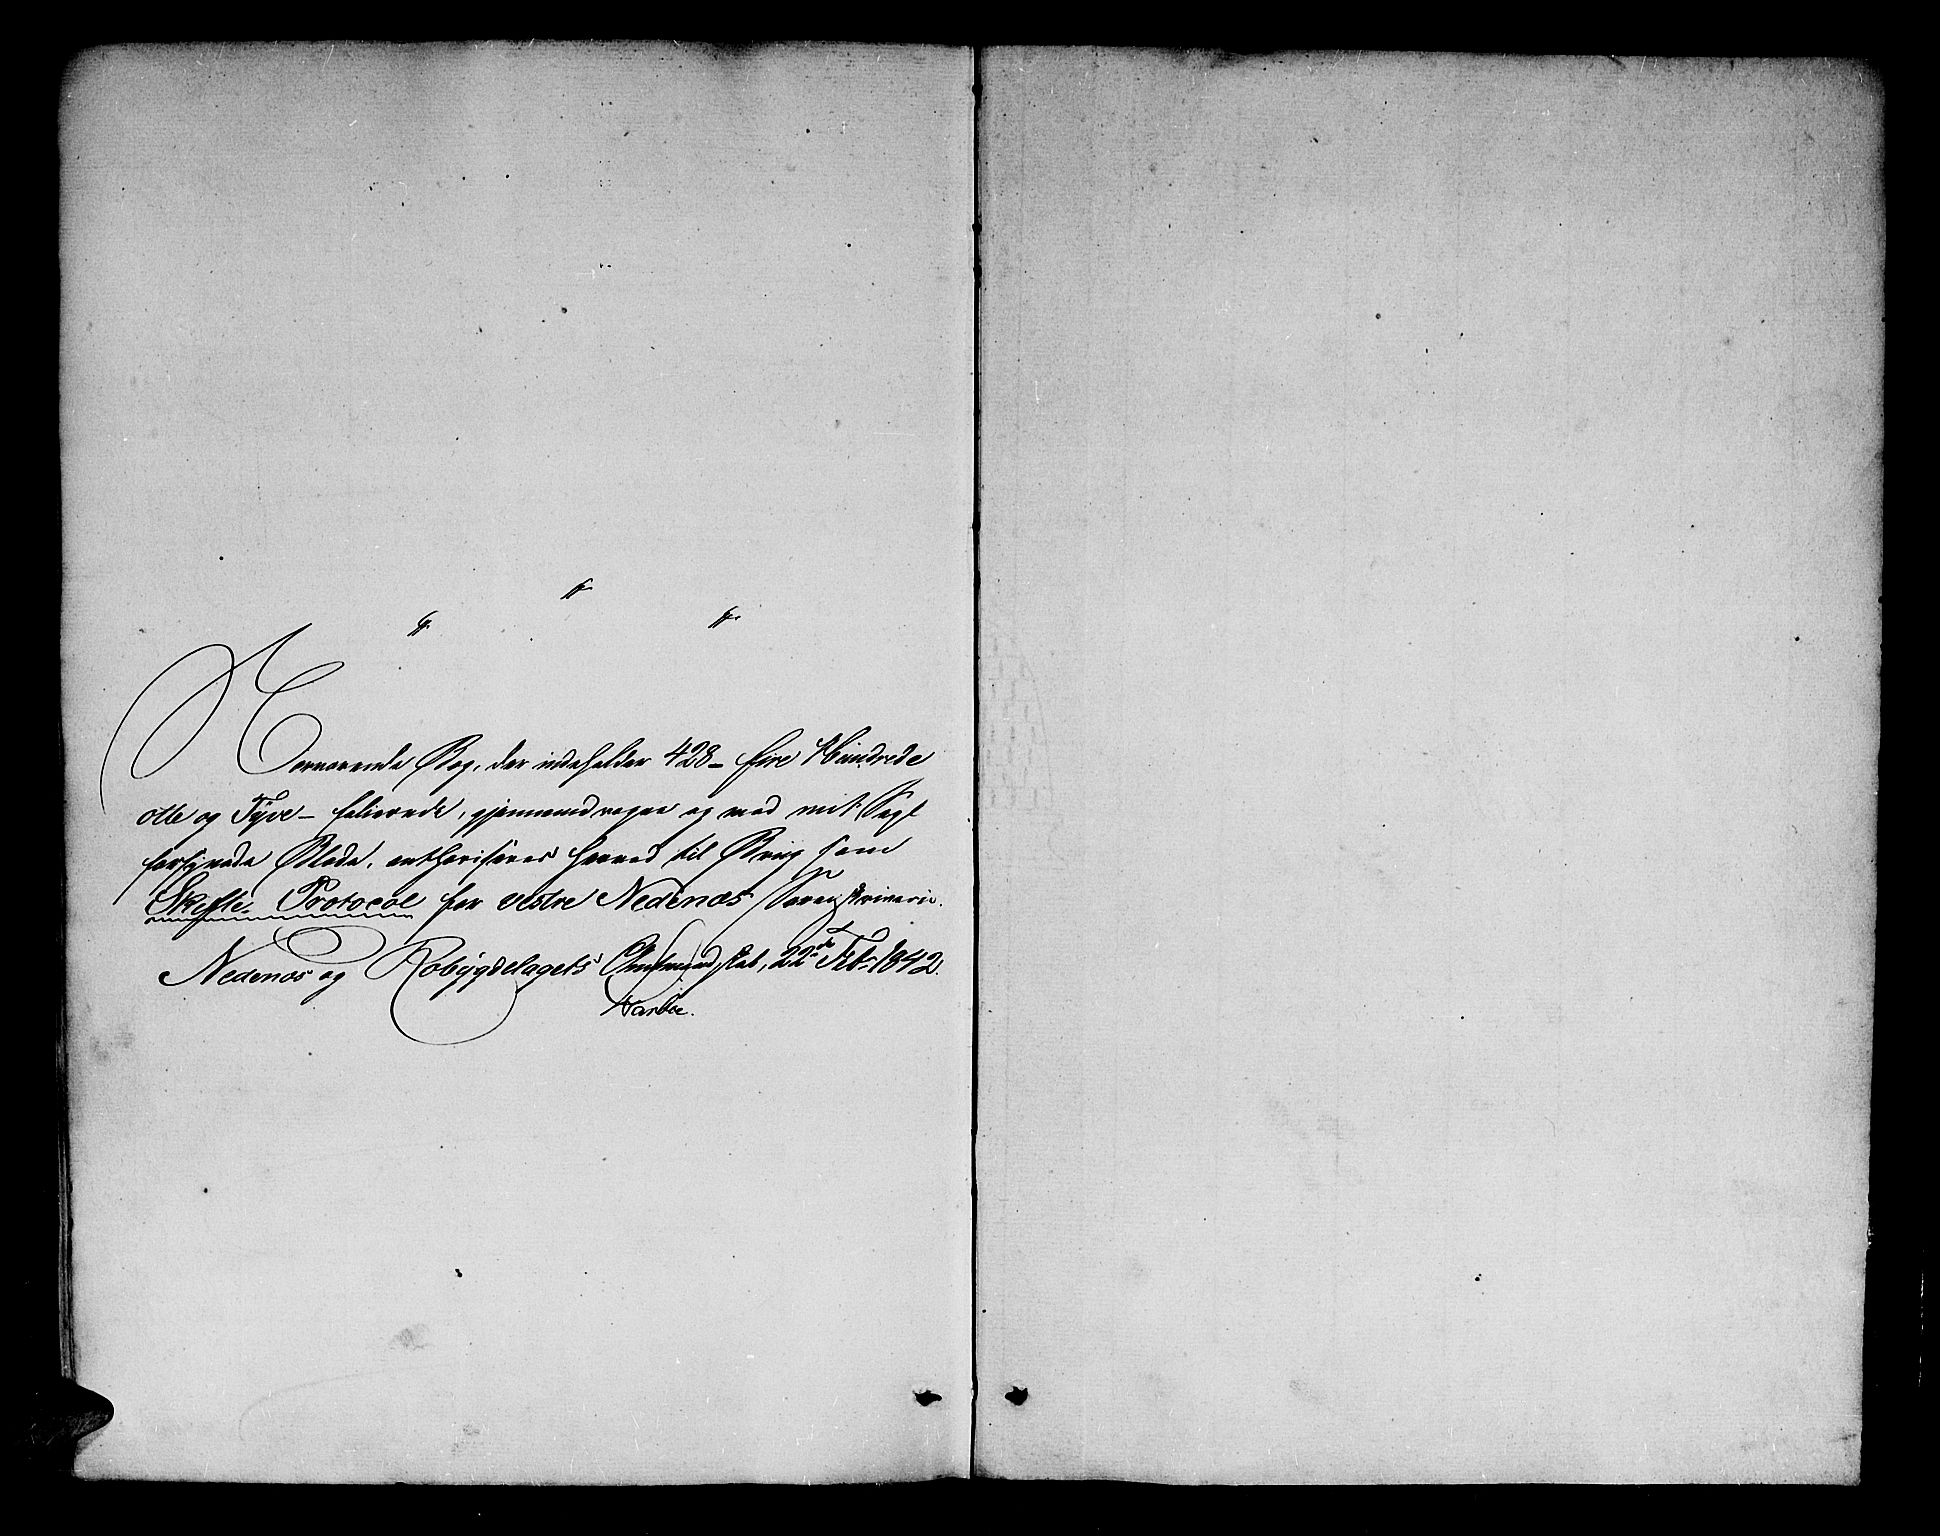 Nærværende Bog, der indeholder 428 – fire Hundrede
otte og Tyve – folierede, gjennemdragne og med mit Segl
forsynede Blade, authoriseres herved til Brug som
Skifte-Protocol for vestre Nedenæs Sorenskriverie.
Nedenæs og Robygdelagets Amtmandskab, 22de Feb. 1842.